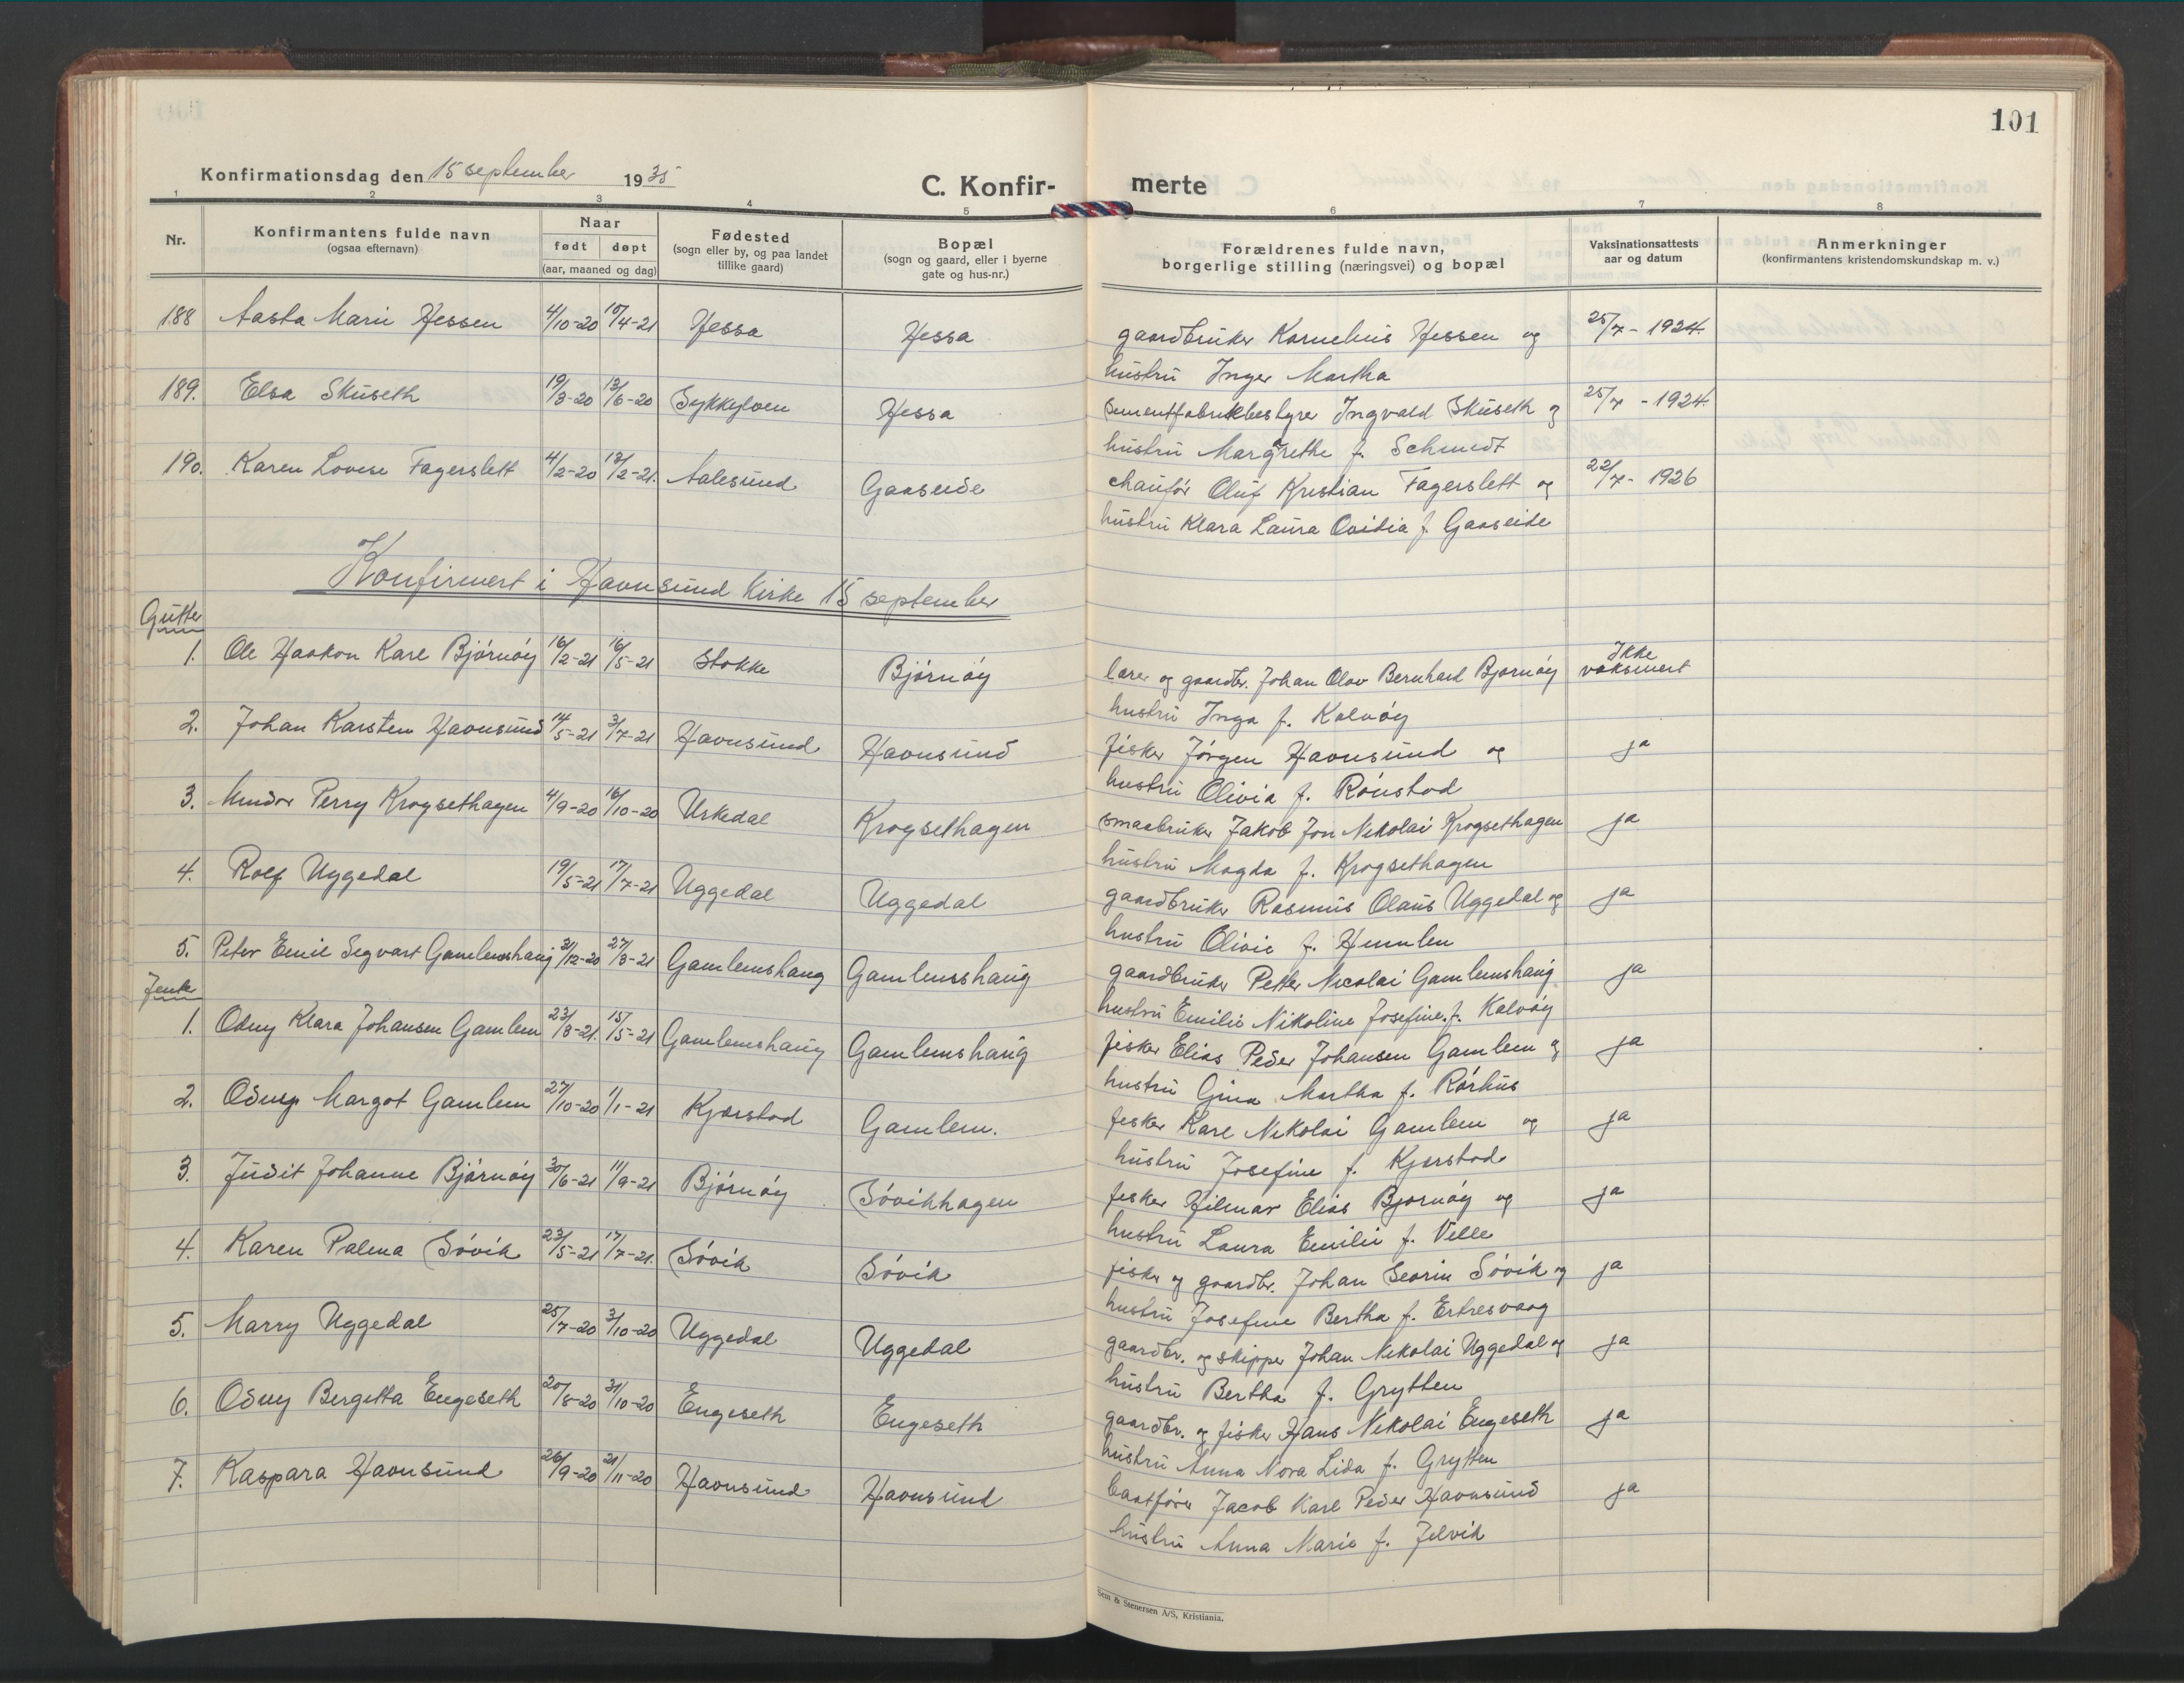 101
Konfirmationsdag den 15 september 1935
C. Konfir- merte
1 2 3 4 5 6 7 8
Nr.
Konfirmantens fulde navn
(ogsaa efternavn)
Naar
født døpt
(aar, maaned og dag)
Fødested
(sogn eller by, og paa landet
tillike gaard)
Bopæl
(sogn og gaard, eller i byerne
gate og hus-nr.)
Forældrenes fulde navn,
borgerlige stilling (næringsvei) og bopæl
Vaksinationsattests
aar og datum
Anmerkninger
(konfirmantens kristendomskundskap m. v.)
188 Aasta Marie Hessen 4/10-20 10/4-21 Hessa Hessa gaardbruker Kornelius Hessen og 25/7 - 1924.
hustru Inger Martha
189. Elsa Skuseth 19/3-20 13/6-20 Sykkylven Hessa sementfabrikbestyrer Ingvald Skuseth og 25/7 - 1924.
hustru Margrethe f. Schmidt
190. Karen Lovise Fagerslett 4/2-20 13/2-21. Aalesund Gaaseide chaufør Oluf Kristian Fagerslett og 22/7 - 1926
hustru Klara Laura Ovidia f. Gaaseide
Konfirmert i Havnsund Kirke 15 september
Gutter
1. Ole Haakon Kare Bjørnøy 16/2-21 16/5-21 Stokke Bjørnøy lærer og gaardbr. Johan Olav Bernhard Bjørnøy Ikke vaksinert
hustru Inga f. Kalvøy
2. Johan Karsten Havnsund 14/5-21 3/7-21 Havnsund Havnsund fisker Jørgen Havnsund og ja
hustru Olivia f. Rønstad
3. Mindor Perry Krogsethagen 4/9-20 16/10-20 Urkedal Krogsethagen smaabruker Jakob Jon Nikolai Krogsethagen ja
hustru Magda f. Krogsethagen
4. Rolf Uggedal 19/5-21 17/7-21 Uggedal Uggedal gaardbruker Rasmus Olaus Uggedal og ja
hustru Olivie f. Humlen
5. Peter Emil Segvart Gamlemshaug 31/12-20 27/3-21 Gamlemshaug Gamlemshaug gaardbruker Petter Nicolai Gamlemshaug ja
hustru Emilie Nikoline Josefine f. Kalvøy
Jenter
1. Odny Klara Johansen Gamlem 23/3-21. 15/5-21 Gamlemshaug Gamlemshaug fisker Elias Peder Johansen Gamlem og ja
hustru Gina Martha f. Rørhus
2. Odny Margot Gamlem 27/10-20 1/1-21 Kjærstad Gamlem. fisker Kare Nikolai Gamlem og ja
hustru Josefine f. Kjærstad
3. Judit Johanne Bjørnøy 30/6-21 11/9-21 Bjørnøy Søvikhagen fisker Hilmar Elias Bjørnøy og ja
hustru Laura Emilie f. Velle
4. Karen Palma Søvik 23/5-21 17/7-21. Søvik Søvik fisker og gaardbr. Johan Severin Søvik og ja
hustru Josefine Bertha f. Ertresvaag
5. Marry Uggedal 25/7-20 3/10-20 Uggedal Uggedal gaardbr. og skipper Johan Nikolai Uggedal og ja
hustru Bertha f. Grytten
6. Odny Bergitta Engeseth 20/8-20 31/10-20 Engeseth Engeseth gaardbr. og fisker Hans Nikolai Engeseth ja
hustru Anna Nora Lida f. Grytten
7. Kaspara Havnsund 26/9-20 21/11-20 Havnsund Havnsund baatfører Jacob Karl Peder Havnsund ja
hustru Anna Marie f. Jelvik
Sem & Stenersen A/S, Kristiania.